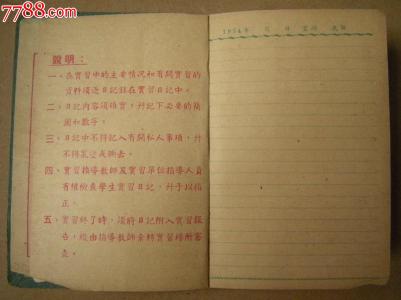 7788.com
說明：
一、在實習中的主要情况和有關實習的
資料須逐日記錄在實習日記中。
二、日記內容須確實，幷記下必要的簡
圖和數字。
三、日記中不得記入有關私人事項，幷
不得塗改或撕去。
四、實習指導教師及實習單位指導人員
有權檢查學生實習日記，幷予以指
正。
五、實習終了時，須將日記附入實習報
告，經由指導教師彙轉實習
查。
1954年 月 日